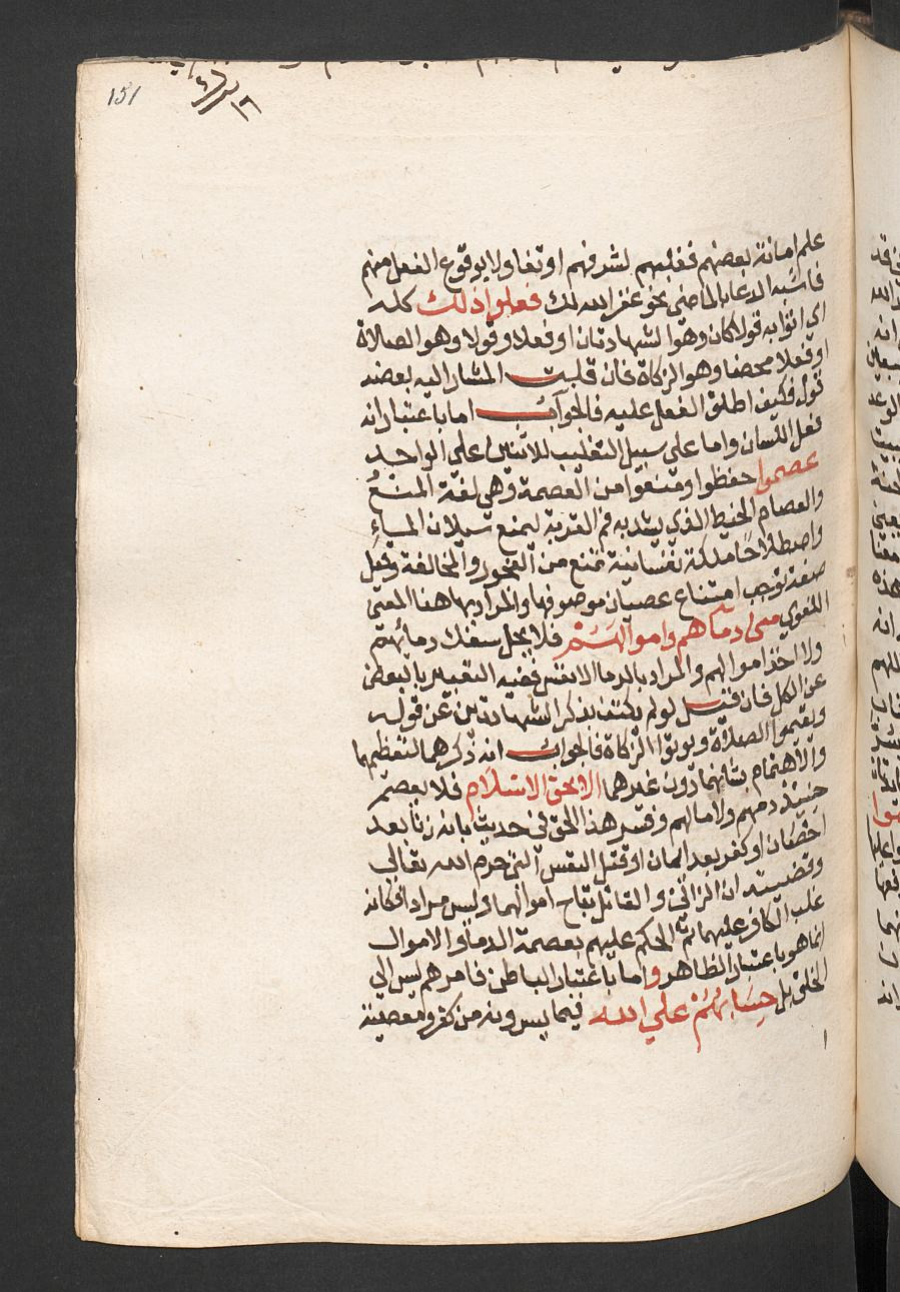 151
علم امانة بعضهم فغلبهم لشرفهم او تفاولا بوقوع الفعل منهم
فاشبه الدعا بالماضى نحو غفر الله لك فعلوا ذلك كله
اى اتوا به قولا كان وهو الشهادتان او فعلا وقولا وهو الصلاة
او فعلا محضا وهو الزكاة فان قلت المشار اليه بعضه
قول فكيف اطلق الفعل عليه فالجواب اما باعتبار انه
فعل اللسان واما على سبيل التغليب للاثنين على الواحد
عصموا حفظوا ومنعوا من العصمة وهى لغة المنع
والعصام الخيط الذى يشد به فم القربة ليمنع سيلان الماء
واصطلاحا ملكة نفسانية تمنع من الفجور والمخالفة وقيل
صفة توجب امتناع عصيان موصوفها والمراد بها هنا المعنى
اللغوى منى دماهم واموالهم فلا يحل سفك دمائهم
ولا اخذ اموالهم والمراد بالدما الانفس ففيه التعبير بالبعض
عن الكل فان قيل لو لم يكتف بذكر الشهادتين عن قوله
ويقيموا الصلاة ويوتوا الزكاة فالجواب انه ذكرهما لتعظيمهما
والاهتمام بشانهما دون غيرهما الا بحق الاسلام فلا يعصم
حينئذ دمهم ولا مالهم وفسر هذا الحق فى حديث بانه زنا بعد
احصان او كفر بعد ايمان او قتل النفس التى حرم الله تعالى
وقضيته ان الزانى والقاتل تباح اموالهما وليس مرادا فكانه
غلب الكافر عليهما ثم الحكم عليهم بعصمة الدما والاموال
انما هو باعتبار الظاهر واما باعتبار الباطن فامرهم ليس الى
الخلق بل حسابهم على الله فيما يسرونه من كفر ومعصية